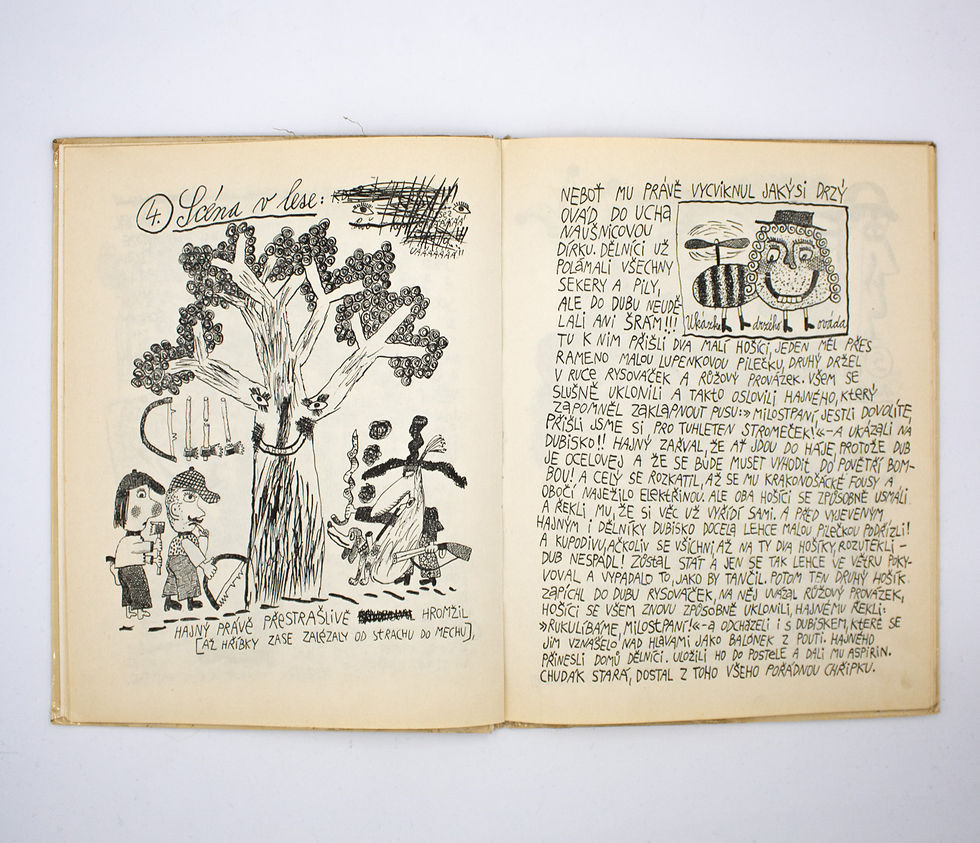 4. Scéna v lese:
UÁÁÁÁÁÁÁ!!
HAJNÝ PRÁVĚ PŘESTRAŠLIVĚ HROMŽIL
[AŽ HŘÍBKY ZASE ZALÉZALY OD STRACHU DO MECHU],
NEBOŤ MU PRÁVĚ VYCVIKNUL JAKÝSI DRZÝ
OVÁD DO UCHA
NAUŠNICOVOU
DÍRKU. DĚLNÍCI UŽ
POLÁMALI VŠECHNY
SEKERY A PILY,
ALE DO DUBU NEUDĚ-
LALI ANI ŠRÁM!!!
Ukázka drzého ováda
TU K NIM PŘIŠLI DVA MALÍ HOŠÍCI, JEDEN MĚL PŘES
RAMENO MALOU LUPENKOVOU PILEČKU, DRUHÝ DRŽEL
V RUCE RYSOVÁČEK A RŮŽOVÝ PROVÁZEK. VŠEM SE
SLUŠNĚ UKLONILI A TAKTO OSLOVILI HAJNÉHO, KTERÝ
ZAPOMNĚL ZAKLAPNOUT PUSU: »MILOSTPANÍ, JESTLI DOVOLÍTE,
PŘIŠLI JSME SI PRO TUHLETEN STROMEČEK!«-A UKÁZALI NA
DUBISKO!! HAJNÝ ZAŘVAL, ŽE AŤ JDOU DO HÁJE, PROTOŽE DUB
JE OCELOVEJ A ŽE SE BUDE MUSET VYHODIT DO POVĚTŘÍ BOM-
BOU! A CELÝ SE ROZKATIL, AŽ SE MU KRAKONOŠÁCKÉ FOUSY A
OBOČÍ NAJEŽILO ELEKTŘINOU. ALE OBA HOŠÍCI SE ZPŮSOBNĚ USMÁLI
A ŘEKLI MU, ŽE SI VĚC UŽ VYŘÍDÍ SAMI. A PŘED VYJEVENÝM
HAJNÝM I DĚLNÍKY DUBISKO DOCELA LEHCE MALOU PILEČKOU PODŘÍZLI!
A KUPODIVU, AČKOLIV SE VŠICHNI, AŽ NA TY DVA HOŠÍKY, ROZUTEKLI –
DUB NESPADL! ZŮSTAL STÁT A JEN SE TAK LEHCE VE VĚTRU POKY-
VOVAL A VYPADALO TO, JAKO BY TANČIL. POTOM TEN DRUHÝ HOŠÍK
ZAPÍCHL DO DUBU RYSOVÁČEK, NA NĚJ UVÁZAL RŮŽOVÝ PROVÁZEK,
HOŠÍCI SE VŠEM ZNOVU ZPŮSOBNĚ UKLONILI, HAJNÉMU ŘEKLI:
»RUKULÍBÁME, MILOSTPANÍ!«-A ODCHÁZELI I S DUBISKEM, KTERÉ SE
JIM VZNÁŠELO NAD HLAVAMI JAKO BALÓNEK Z POUTI. HAJNÉHO
PŘINESLI DOMŮ DĚLNÍCI. ULOŽILI HO DO POSTELE A DALI MU ASPIRIN.
CHUDÁK STARÁ, DOSTAL Z TOHO VŠEHO POŘÁDNOU CHŘIPKU.